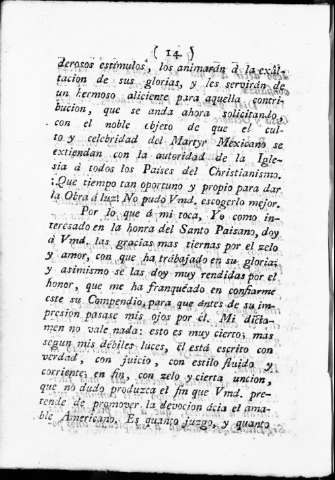 ( 14 )
derosos estímulos, los animarán á la exâl-
tacion de sus glorias, y les servirán de
un hermoso aliciente para aquella contri-
bucion, que se anda ahora solicitando,
con el noble objeto de que el cul-
to y celebridad del Martyr Mexicano se
extiendan con la autoridad de la Igle-
sia á todos los Países del Christianismo.
¡Que tiempo tan oportuno y propio para dar
la Obra á luz! No pudo Vmd. escogerlo mejor.
Por lo que á mi toca, Yo como in-
teresado en la honra del Santo Paisano, doy
á Vmd. las gracias mas tiernas por el zelo
y amor, con que ha trabajado en su gloria;
y asimismo se las doy muy rendidas por el
honor, que me ha franqueado en confiarme
este su Compendio, para que ántes de su im-
presion pasase mis ojos por él. Mi dicta-
men no vale nada: esto es muy cierto; mas
segun mis débiles luces, él está escrito con
verdad, con juicio, con estilo fluido y
corriente; en fin, con zelo y cierta uncion,
que no dudo produzca el fin que Vmd. pre-
tende de promover la devocion ácia el ama-
ble Americano. Es quanto juzgo, y quanto